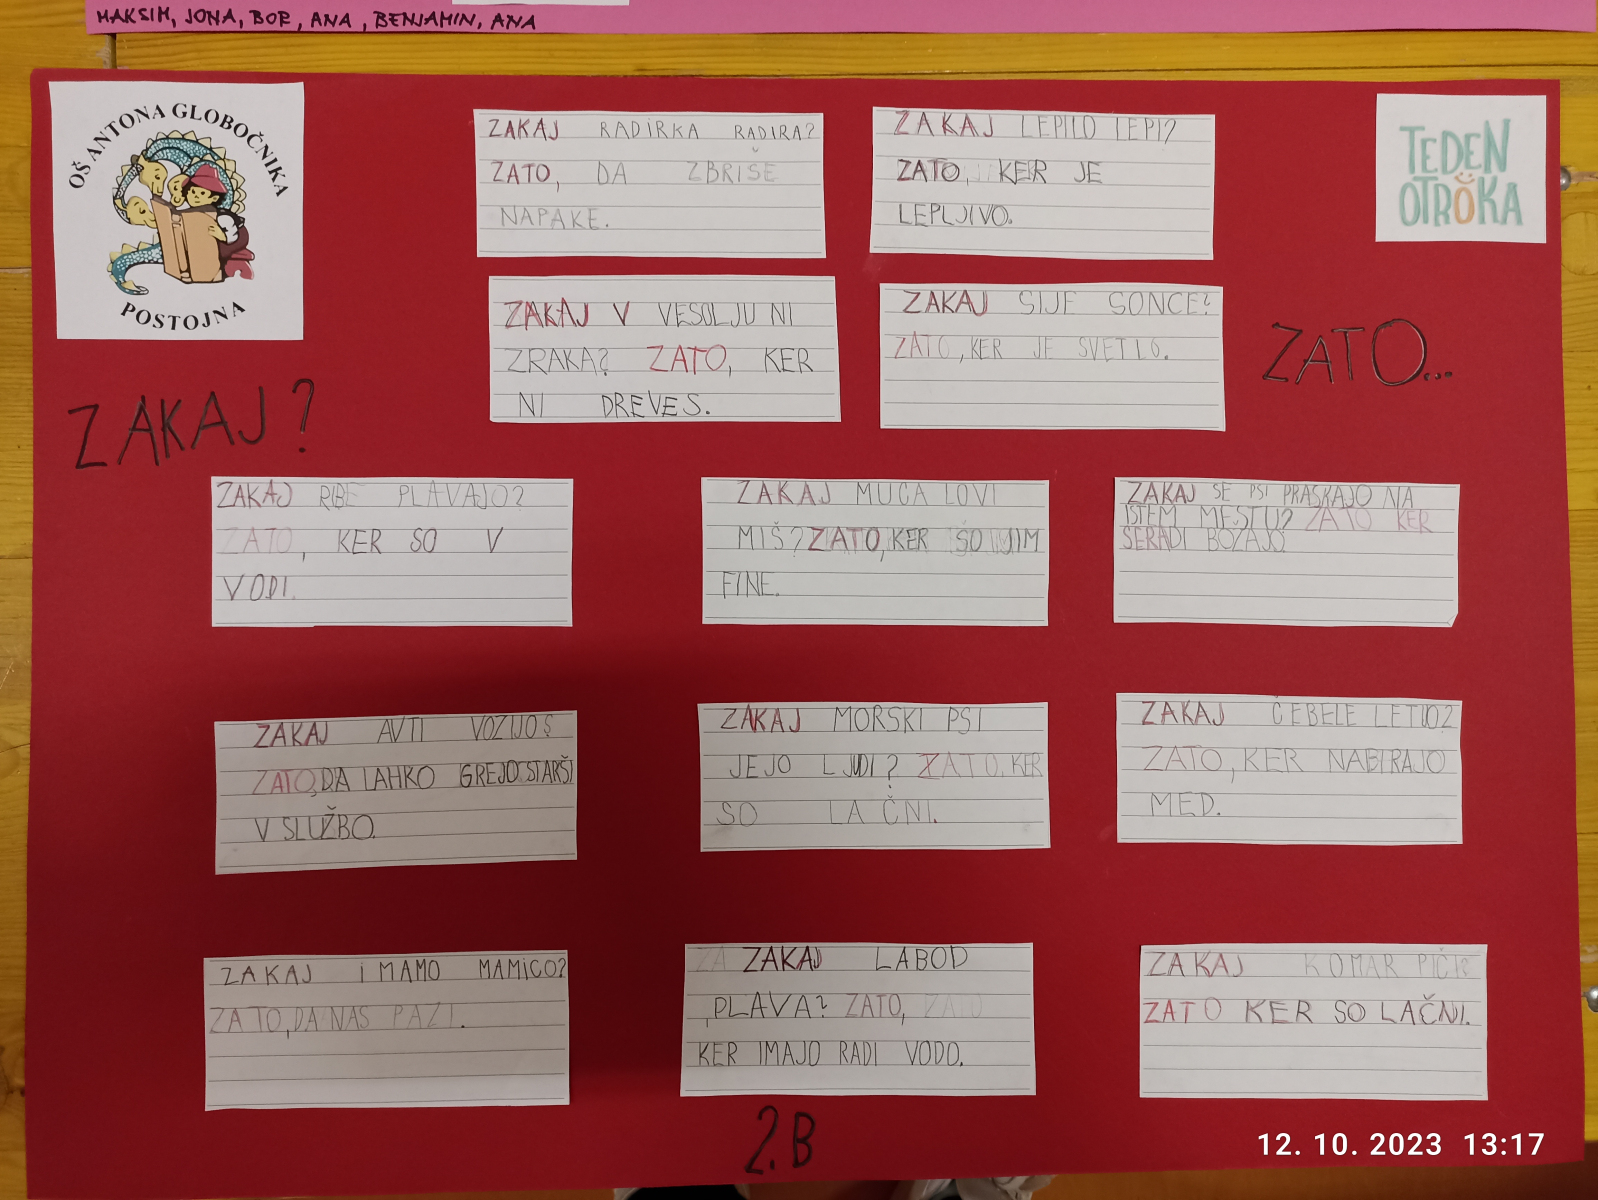 MAKSIM, JONA, BOR, ANA, BENJAMIN, ANA
OŠ ANTONA GLOBOČNIKA
POSTOJNA
TEDEN
OTROKA
ZAKAJ?
ZATO...
ZAKAJ RADIRKA RADIRA?
ZATO, DA ZBRIŠE
NAPAKE.
ZAKAJ LEPILO LEPI?
ZATO, KER JE
LEPLJIVO.
ZAKAJ V VESOLJU NI
ZRAKA? ZATO, KER
NI DREVES.
ZAKAJ SIJE SONCE?
ZATO, KER JE SVETLO.
ZAKAJ RIBE PLAVAJO?
ZATO, KER SO V
VODI.
ZAKAJ MUCA LOVI
MIŠ? ZATO, KER SO JIM
FINE.
ZAKAJ SE PSI PRASKAJO NA
ISTEM MESTU? ZATO KER
SERADI BOŽAJO.
ZAKAJ AVTI VOZIJO?
ZATO, DA LAHKO GREJO STARŠI
V SLUŽBO.
ZAKAJ MORSKI PSI
JEJO LJUDI? ZATO, KER
SO LAČNI.
ZAKAJ ČEBELE LETIJO?
ZATO, KER NABIRAJO
MED.
ZAKAJ IMAMO MAMICO?
ZATO, DA NAS PAZI.
ZAKAJ LABOD
PLAVA? ZATO,
KER IMAJO RADI VODO.
ZAKAJ KOMAR PIČI?
ZATO KER SO LAČNI.
2.B
12. 10. 2023 13:17